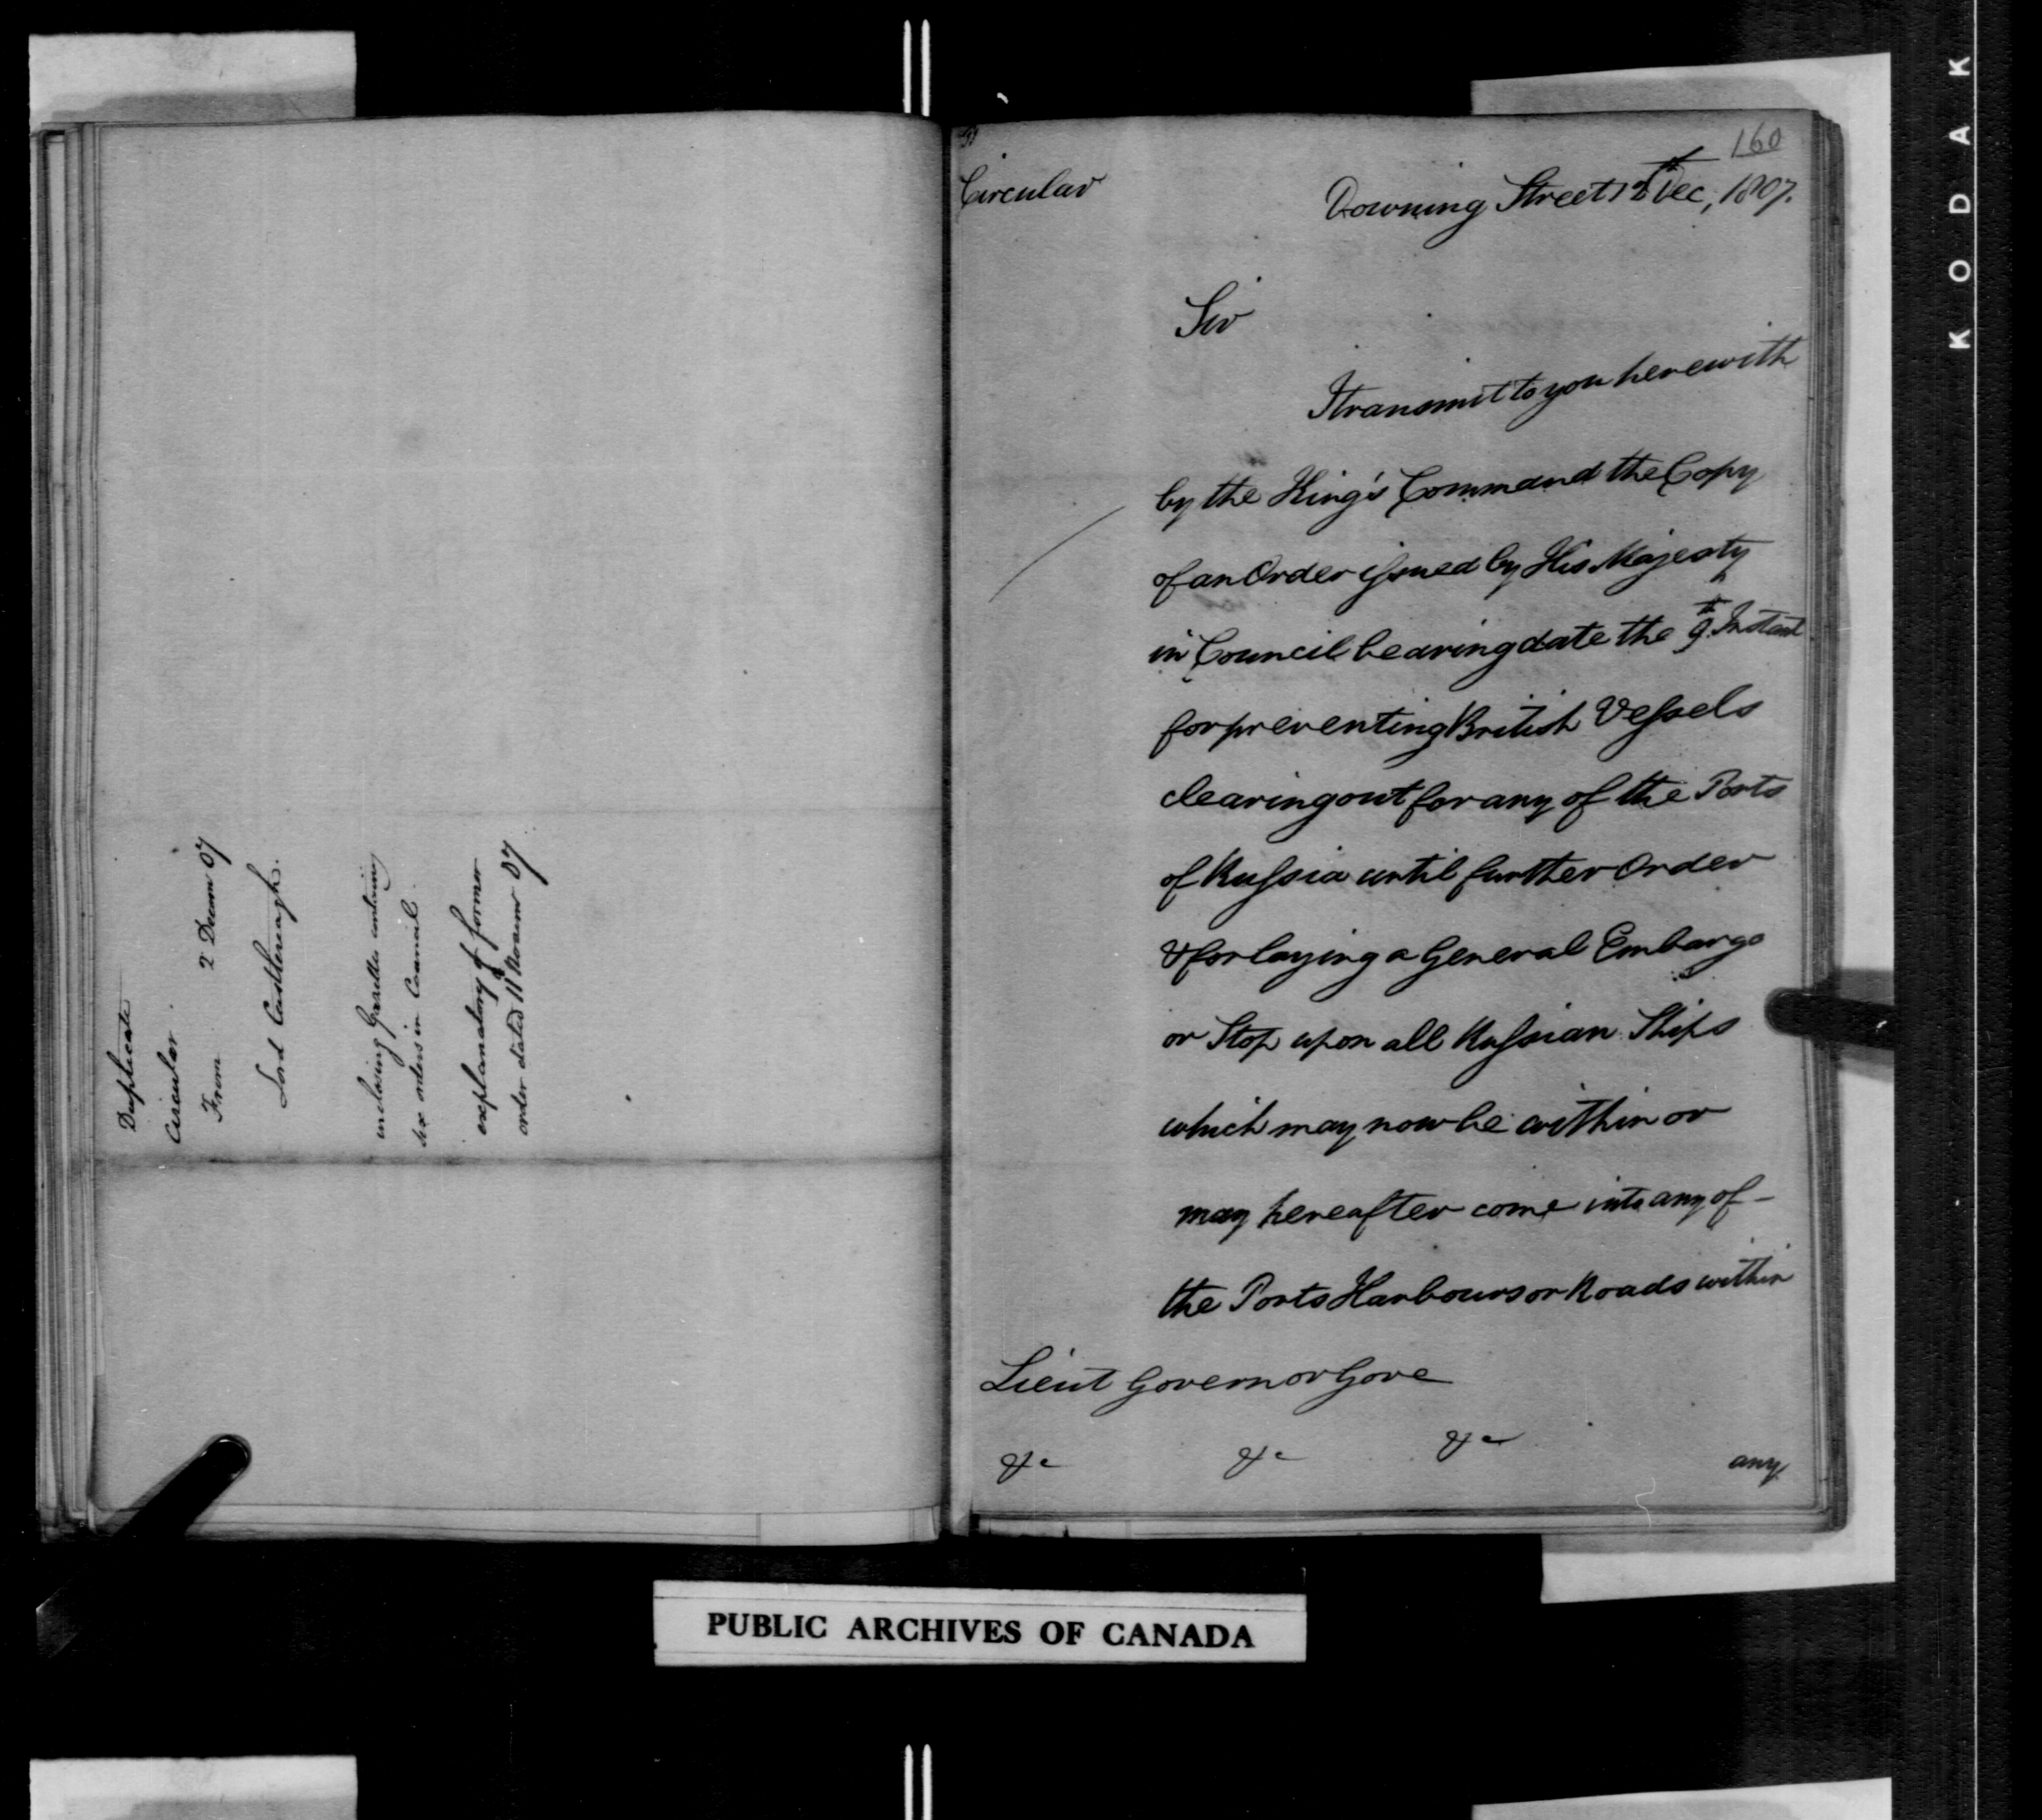 Duplicate
Circular
From 2 Decem 07
Lord Castlereagh.
inclosing Gazettes containing
six orders in Council
explanatory of former
order dated 11th Novemr 07
160
Circular
Downing Street 12th Dec, 1807.
Sir
I transmit to you herewith
by the King's Command the Copy
of an Order issued by His Majesty
in Council bearing date the 9th Instant
for preventing British Vessels
clearing out for any of the Ports
of Russia until further Order
& for laying a General Embargo
or Stop upon all Russian Ships
which may now be within or
may hereafter come into any of -
the Ports Harbours or Roads within
Lieut Governor Gore
&c &c &c
any
PUBLIC ARCHIVES OF CANADA
KODAK